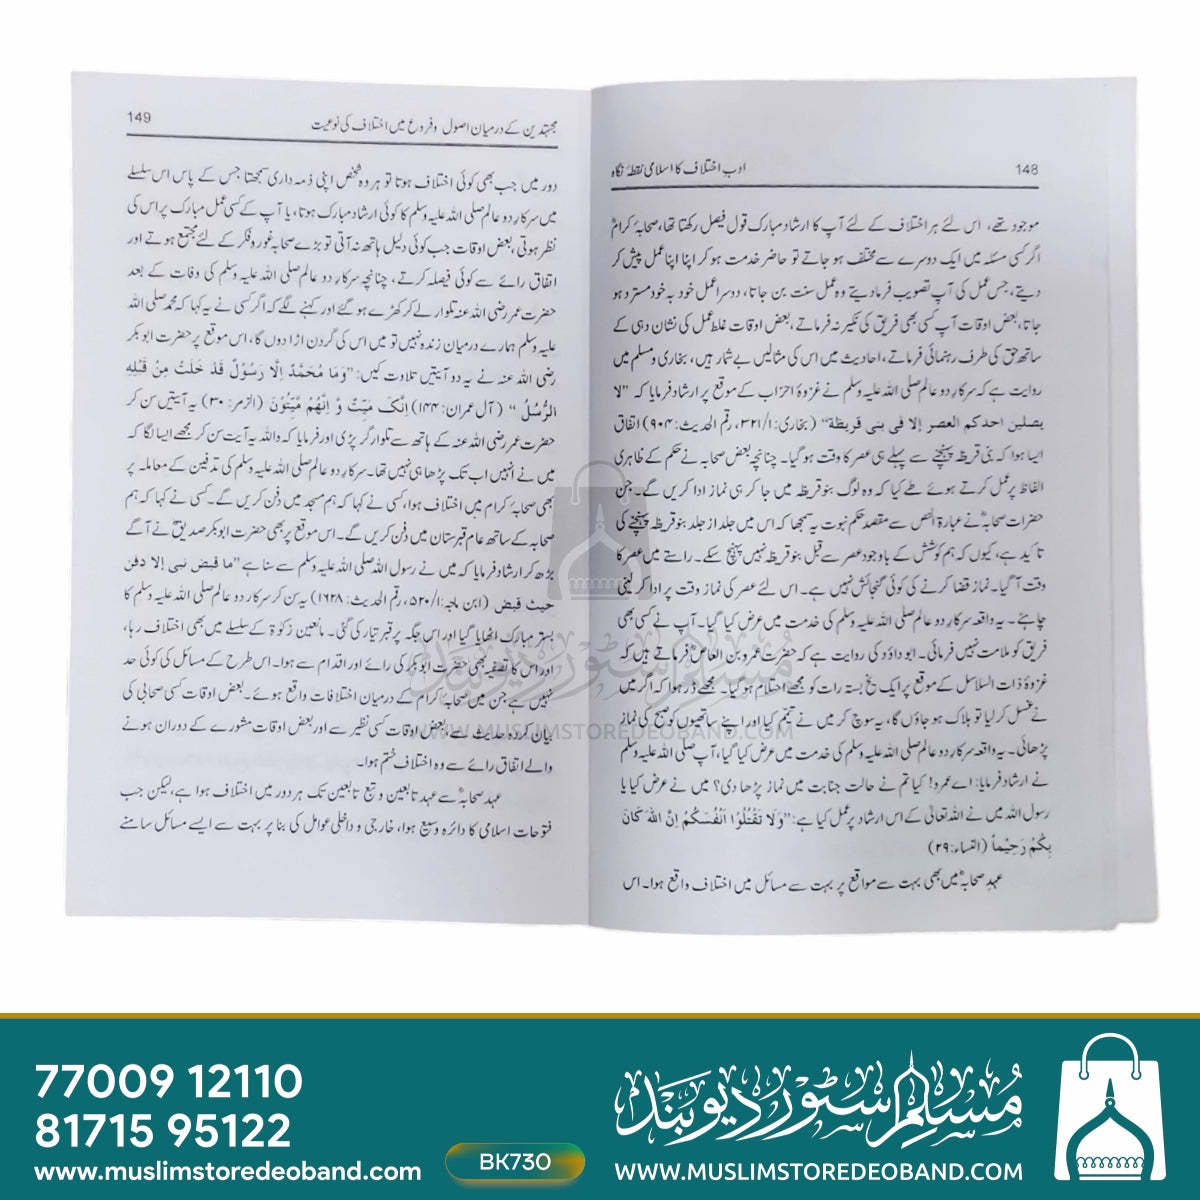 148
ادب اختلاف کا اسلامی نقطۂ نگاہ
موجود تھے، اس لئے ہر اختلاف کے لئے آپ کا ارشاد مبارک قول فیصل رکھتا تھا، صحابۂ کرامؓ
اگر کسی مسئلہ میں ایک دوسرے سے مختلف ہو جاتے تو حاضر خدمت ہو کر اپنا اپنا عمل پیش کر
دیتے، جس عمل کی آپ تصویب فرما دیتے وہ عمل سنت بن جاتا، دوسرا عمل خود بہ خود مسترد ہو
جاتا، بعض اوقات آپ کسی بھی فریق کی نکیر نہ فرماتے، بعض اوقات غلط عمل کی نشان دہی کے
ساتھ حق کی طرف رہنمائی فرماتے، احادیث میں اس کی مثالیں بے شمار ہیں، بخاری و مسلم میں
روایت ہے کہ سرکار دو عالم صلی اللہ علیہ وسلم نے غزوۂ احزاب کے موقع پر ارشاد فرمایا کہ ”لا
یصلین احدکم العصر إلا فی بنی قریظة“ (بخاری: ۱/۳۲۱، رقم الحدیث: ۹۰۴) اتفاق
ایسا ہوا کہ بنی قریظہ پہنچنے سے پہلے ہی عصر کا وقت ہو گیا۔ چنانچہ بعض صحابہ نے حکم کے ظاہری
الفاظ پر عمل کرتے ہوئے طے کیا کہ وہ لوگ بنو قریظہ میں جا کر ہی نماز ادا کریں گے۔ جن
حضرات صحابہؓ نے عبارة النص سے مقصد حکم نبوت یہ سمجھا کہ اس میں جلد از جلد بنو قریظہ پہنچنے کی
تاکید ہے، کیوں کہ ہم کوشش کے باوجود عصر سے قبل بنو قریظہ نہیں پہنچ سکے۔ راستے میں عصر کا
وقت آ گیا۔ نماز قضا کرنے کی کوئی گنجائش نہیں ہے۔ اس لئے عصر کی نماز وقت پر ادا کر لینی
چاہئے۔ یہ واقعہ سرکار دو عالم صلی اللہ علیہ وسلم کی خدمت میں عرض کیا گیا۔ آپ نے کسی بھی
فریق کو ملامت نہیں فرمائی۔ ابو داؤد کی روایت ہے کہ حضرت عمرو بن العاصؓ فرماتے ہیں کہ
غزوۂ ذات السلاسل کے موقع پر ایک یخ بستہ رات کو مجھے احتلام ہو گیا۔ مجھے ڈر ہوا کہ اگر میں
نے غسل کر لیا تو ہلاک ہو جاؤں گا، یہ سوچ کر میں نے تیمّم کیا اور اپنے ساتھیوں کو صبح کی نماز
پڑھائی۔ یہ واقعہ سرکار دو عالم صلی اللہ علیہ وسلم کی خدمت میں عرض کیا گیا، آپ صلی اللہ علیہ وسلم
نے ارشاد فرمایا: اے عمرو! کیا تم نے حالت جنابت میں نماز پڑھا دی؟ میں نے عرض کیا یا
رسول اللہ میں نے اللہ تعالیٰ کے اس ارشاد پر عمل کیا ہے: ”وَلَا تَقْتُلُوْا اَنْفُسَكُمْ اِنَّ اللّٰهَ كَانَ
بِكُمْ رَحِيْماً (النساء: ۲۹)
عہد صحابہؓ میں بھی بہت سے مواقع پر بہت سے مسائل میں اختلاف واقع ہوا۔ اس
مجتہدین کے درمیان اصول و فروع میں اختلاف کی نوعیت
149
دور میں جب بھی کوئی اختلاف ہوتا تو ہر وہ شخص اپنی ذمہ داری سمجھتا جس کے پاس اس سلسلے
میں سرکار دو عالم صلی اللہ علیہ وسلم کا کوئی ارشاد مبارک ہوتا، یا آپ کے کسی عمل مبارک پر اس کی
نظر ہوتی، بعض اوقات جب کوئی دلیل ہاتھ نہ آتی تو بڑے صحابہ غور و فکر کے لئے مجتمع ہوتے اور
اتفاق رائے سے کوئی فیصلہ کرتے، چنانچہ سرکار دو عالم صلی اللہ علیہ وسلم کی وفات کے بعد
حضرت عمر رضی اللہ عنہ تلوار لے کر کھڑے ہو گئے اور کہنے لگے کہ اگر کسی نے یہ کہا کہ محمد صلی اللہ
علیہ وسلم ہمارے درمیان زندہ نہیں تو میں اس کی گردن اڑا دوں گا، اس موقع پر حضرت ابو بکر
رضی اللہ عنہ نے یہ دو آیتیں تلاوت کیں: ”وَمَا مُحَمَّدٌ اِلَّا رَسُوْلٌ قَدْ خَلَتْ مِنْ قَبْلِهِ
الرُّسُلُ“ (آل عمران: ۱۴۴) اِنَّكَ مَيِّتٌ وَّ اِنَّهُمْ مَّيِّتُوْنَ (الزمر: ۳۰) یہ آیتیں سن کر
حضرت عمر رضی اللہ عنہ کے ہاتھ سے تلوار گر پڑی اور فرمایا کہ واللہ یہ آیت سن کر مجھے ایسا لگا کہ
میں نے انہیں اب تک پڑھا ہی نہیں تھا۔ سرکار دو عالم صلی اللہ علیہ وسلم کی تدفین کے معاملہ پر
بھی صحابۂ کرام میں اختلاف ہوا، کسی نے کہا کہ ہم مسجد میں دفن کریں گے۔ کسی نے کہا کہ ہم
صحابہ کے ساتھ عام قبرستان میں دفن کریں گے۔ اس موقع پر بھی حضرت ابو بکر صدیقؓ نے آگے
بڑھ کر ارشاد فرمایا کہ میں نے رسول اللہ صلی اللہ علیہ وسلم سے سنا ہے ”ما قبض نبی إلا دفن
حیث قبض (ابن ماجہ: ۱/۵۲۰، رقم الحدیث: ۱۶۲۸) یہ سن کر سرکار دو عالم صلی اللہ علیہ وسلم کا
بستر مبارک اٹھایا گیا اور اس جگہ پر قبر تیار کی گئی۔ مانعین زکوٰة کے سلسلے میں بھی اختلاف رہا،
اور اس کا تصفیہ بھی حضرت ابو بکر کی رائے اور اقدام سے ہوا۔ اس طرح کے مسائل کی کوئی حد
نہیں ہے جن میں صحابۂ کرام کے درمیان اختلافات واقع ہوئے۔ بعض اوقات کسی صحابی کی
بیان کردہ حدیث سے، بعض اوقات کسی نظیر سے اور بعض اوقات مشورے کے دوران ہونے
والے اتفاق رائے سے وہ اختلاف ختم ہوا۔
عہد صحابہؓ سے عہد تابعین و تبع تابعین تک ہر دور میں اختلاف ہوا ہے، لیکن جب
فتوحات اسلامی کا دائرہ وسیع ہوا، خارجی و داخلی عوامل کی بنا پر بہت سے ایسے مسائل سامنے
مسلم سٹور دیوبند
WWW.MUSLIMSTOREDEOBAND.COM
77009 12110
81715 95122
www.muslimstoredeoband.com
BK730
مسلم سٹور دیوبند
WWW.MUSLIMSTOREDEOBAND.COM